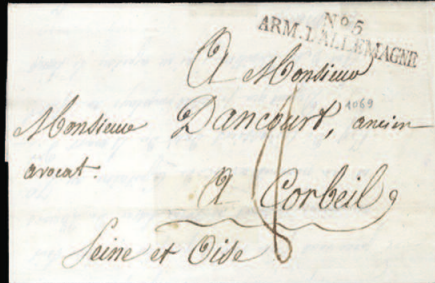 No 5
ARM. D'ALLEMAGNE
A Monsieur
Monsieur Dancourt, ancien
1069
avocat.
A Corbeil,
Seine et Oise